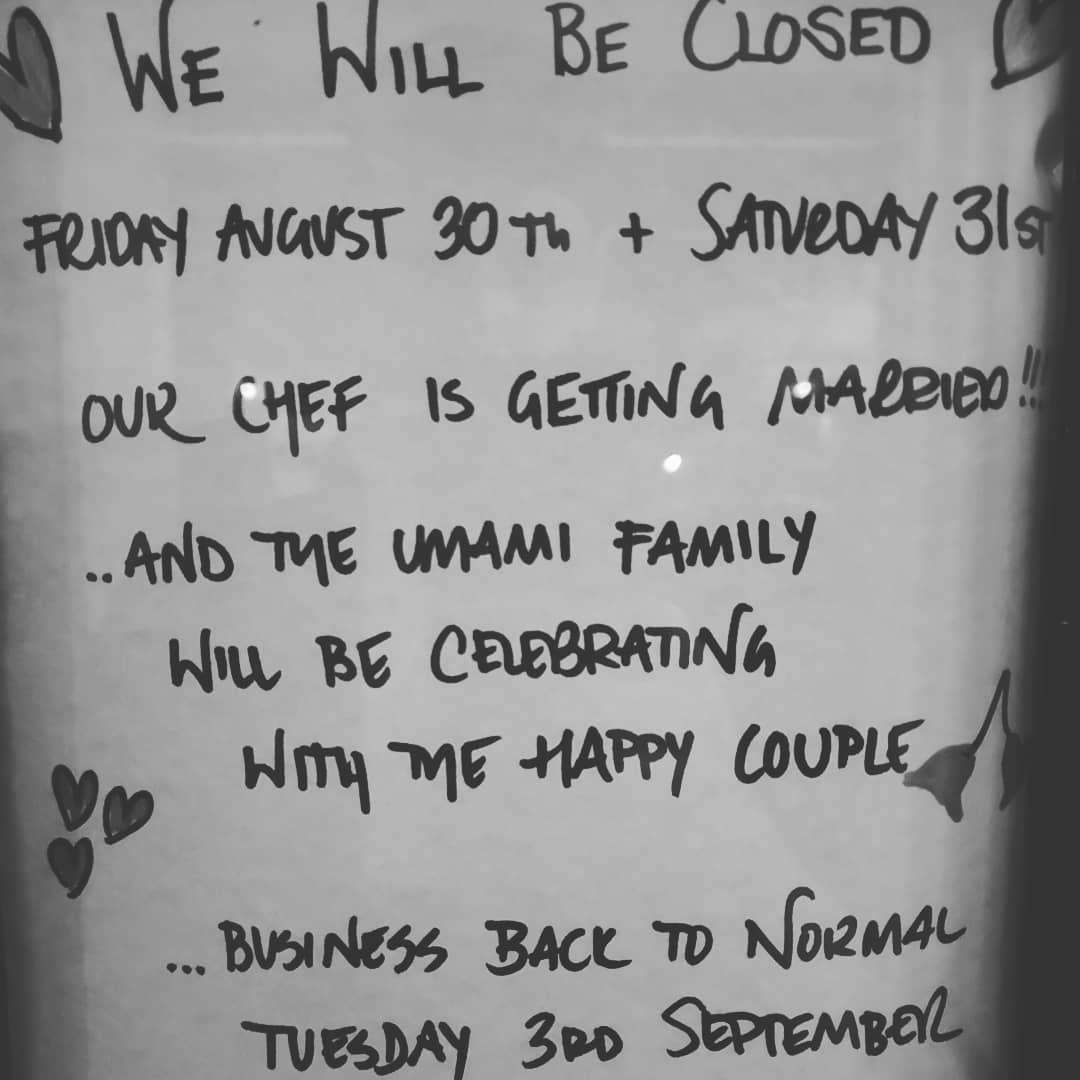 WE WILL BE CLOSED
FRIDAY AUGUST 30TH + SATURDAY 31ST
OUR CHEF IS GETTING MARRIED!!!
..AND THE UMAMI FAMILY
WILL BE CELEBRATING
WITH THE HAPPY COUPLE
...BUSINESS BACK TO NORMAL
TUESDAY 3RD SEPTEMBER